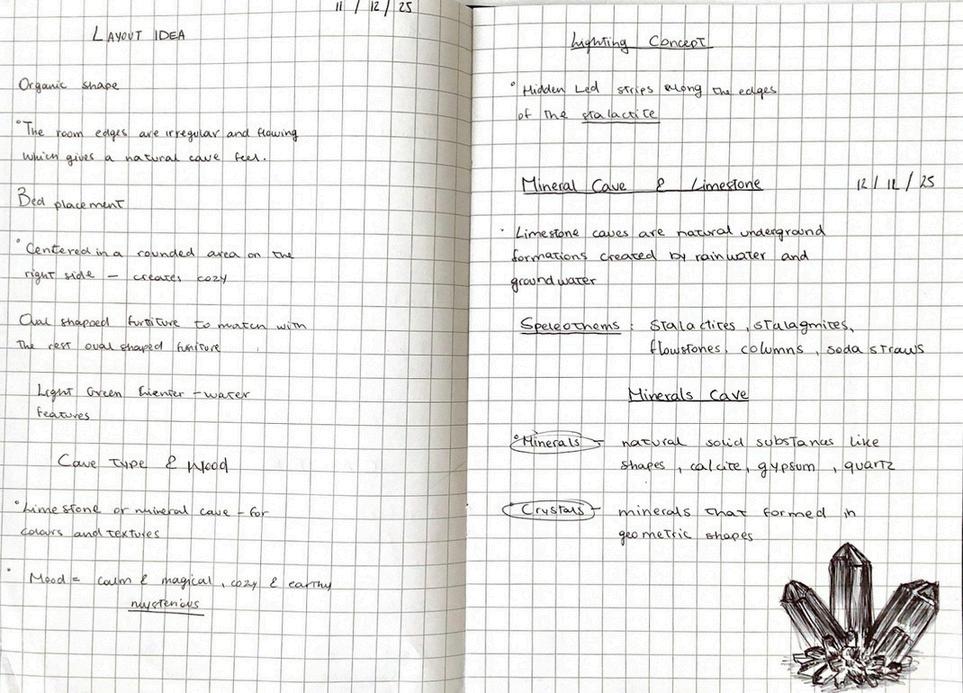 11 / 12 / 25
LAYOUT IDEA
Organic shape
°The room edges are irregular and flowing
which gives a natural cave feel.
Bed placement
°Centered in a rounded area on the
right side – creates cozy
Oval shapoed furtiture to match with
The rest oval shaped funiture
Light Green – water
features
Cave Type & Wood
°Limestone or mineral cave – for
colours and textures
° Mood = calm & magical, cozy & earthy
mysterious
Lighting Concept
° Hidden Led strips along the edges
of the stalactite
Mineral Cave & Limestone 12 / 12 / 25
· Limestone caves are natural underground
formations created by rainwater and
groundwater
Speleothems : Stalactites, stalagmites,
flowstones, columns, soda straws
Minerals Cave
°Minerals – natural solid substances like
shapes, calcite, gypsum, quartz
°Crystals – minerals that formed in
geometric shapes